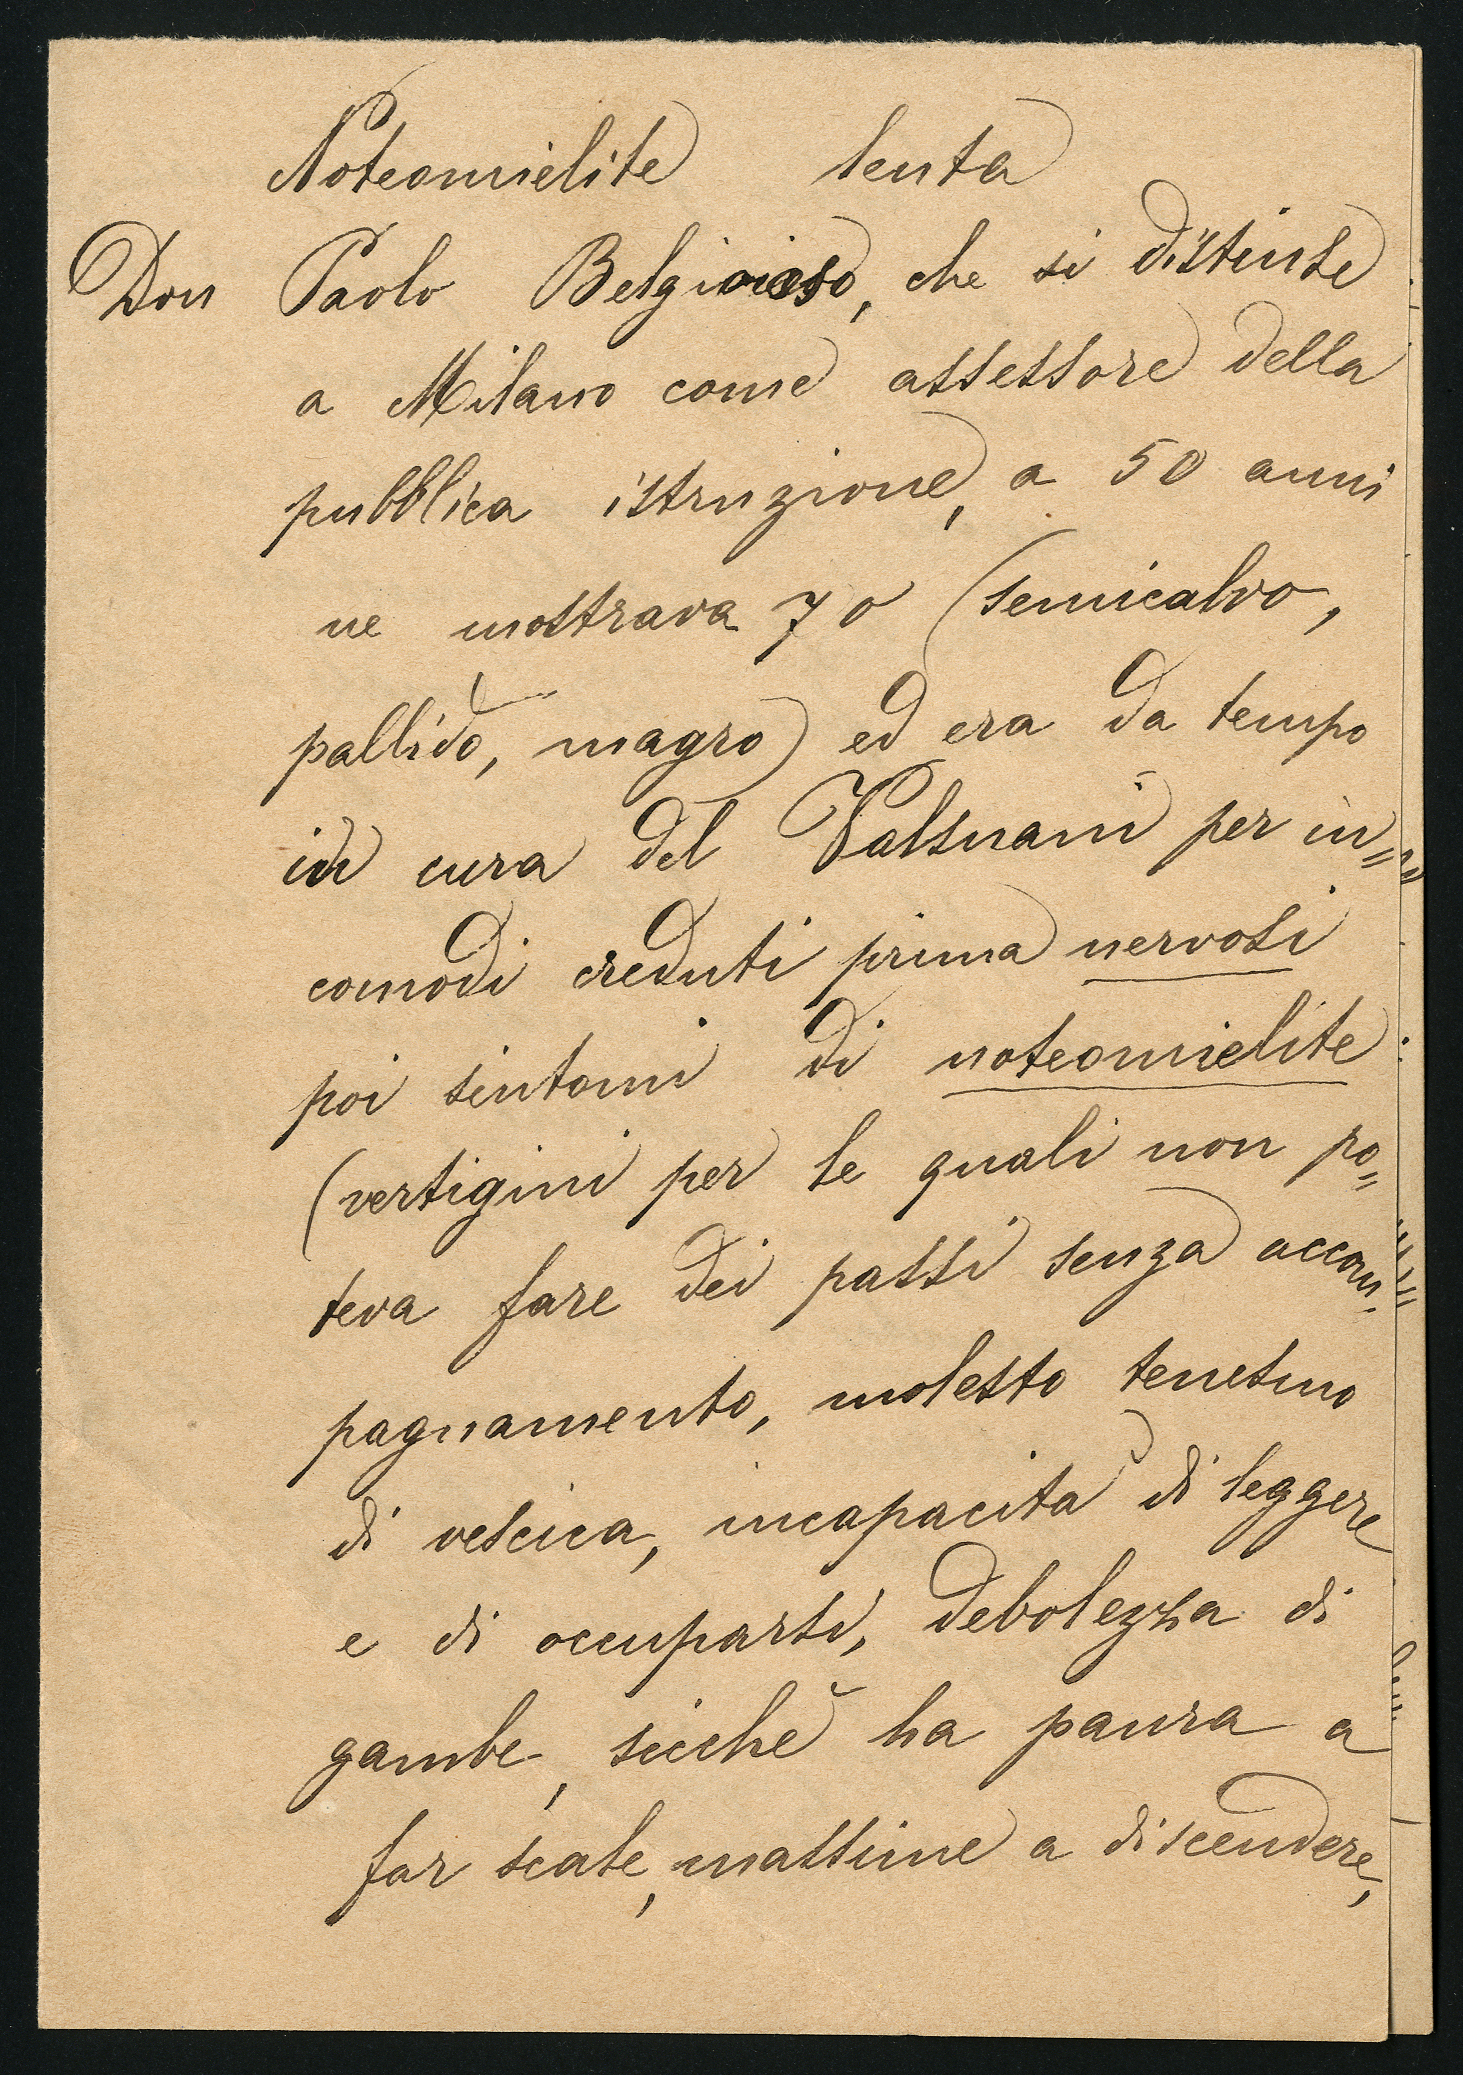 Noteomielite lenta
Don Paolo Belgioioso, che si distinse
a Milano come assessore della
pubblica istruzione, a 50 anni
ne mostrava 70 (semicalvo,
pallido, magro) ed era da tempo
in cura del Valsuani per in=
comodi creduti prima nervosi
poi sintomi di noteomielite
(vertigini per le quali non po=
teva fare dei passi senza accom-
pagnamento, molesto tenesmo
di vescica, incapacità di leggere
e di occuparsi, debolezza di
gambe, sicchè ha paura a
far scale, massime a discendere,